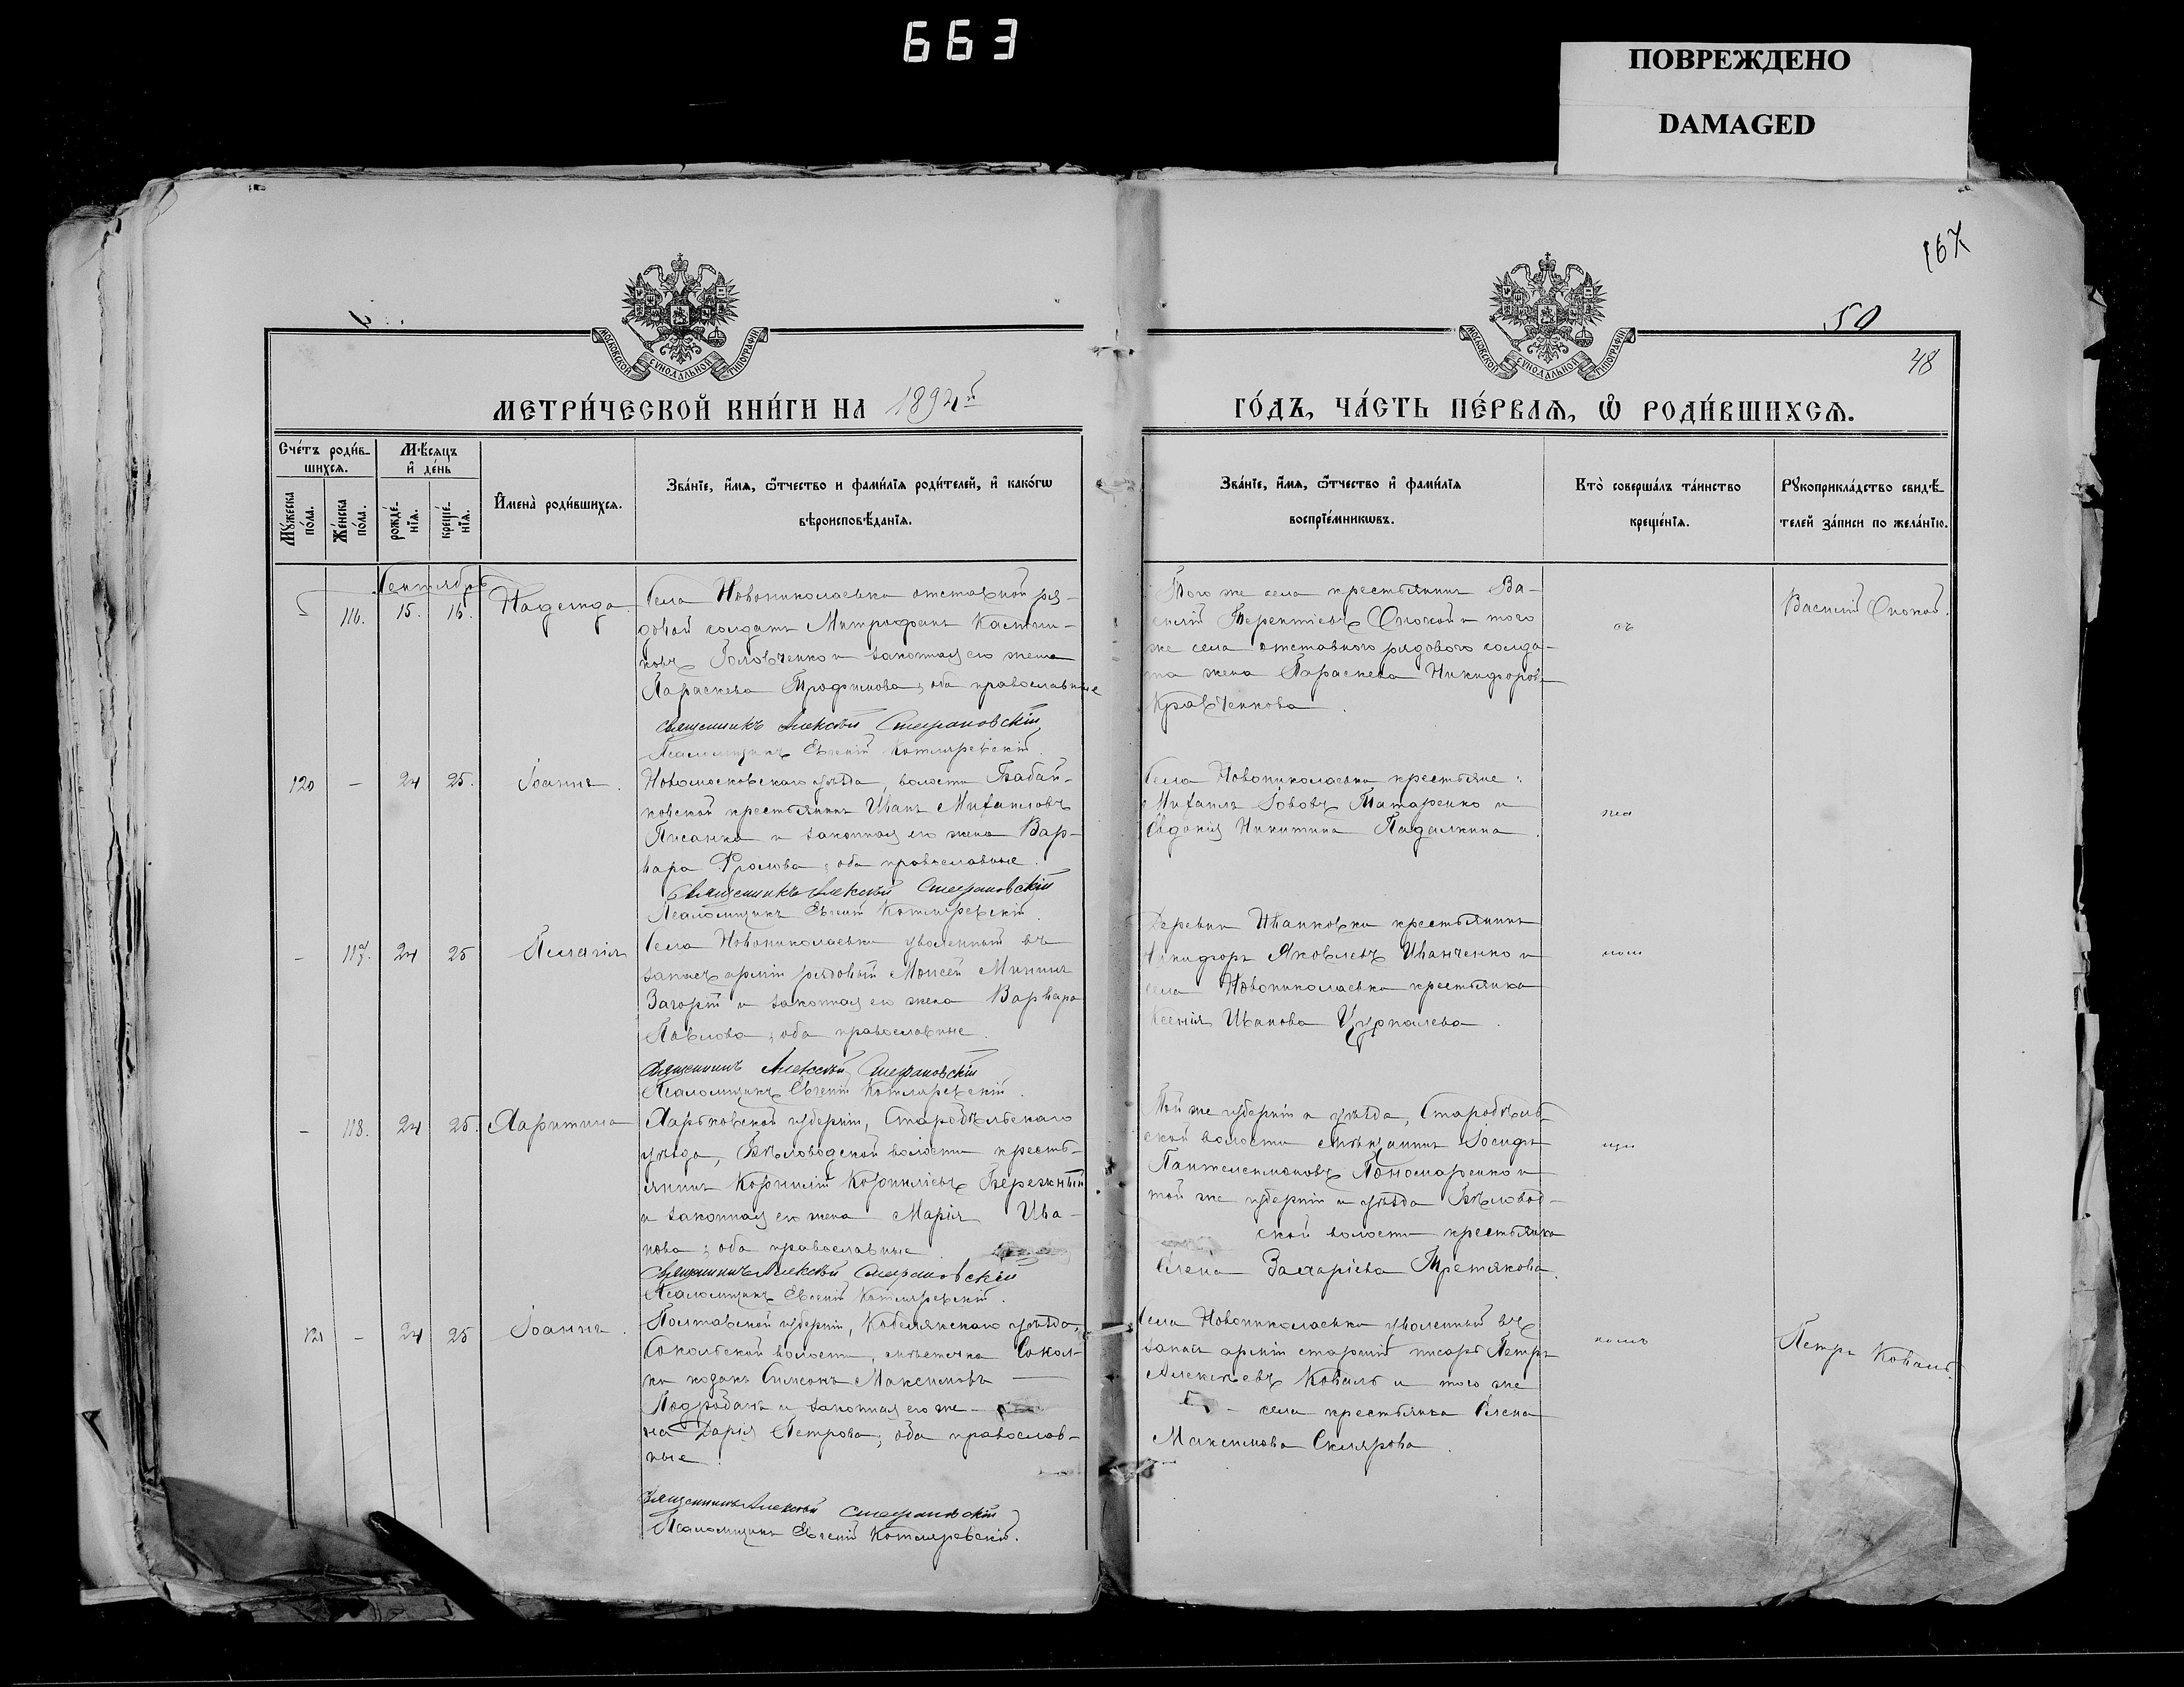 663
ПОВРЕЖДЕНО
DAMAGED
167
50
48
МОСКОВСКОЙ СѴНОДАЛЬНОЙ ТИПОГРАФІИ
МОСКОВСКОЙ СѴНОДАЛЬНОЙ ТИПОГРАФІИ
МЕТРИ́ЧЕСКОЙ КНИ́ГИ НА 1894й
ГО́ДЪ, ЧА́СТЬ ПЕ́РВАѦ, Ѡ҆ РОДИ́ВШИХСѦ.
Сче́тъ роди́вшихсѧ.
Мѹ́жеска по́ла.
Же́нска по́ла.
Мѣ́сѧцъ и҆ де́нь
рожде́нїѧ.
креще́нїѧ.
И҆мена̀ роди́вшихсѧ.
Зва́нїе, и҆́мѧ, ѻ҆́тчество и фами́лїѧ роди́телей, и҆ како́гѡ
вѣроисповѣ́данїѧ.
Зва́нїе, и҆́мѧ, ѻ҆́тчество и҆ фами́лїѧ
воспрїе́мникѡвъ.
Кто̀ соверша́лъ та́инство
креще́нїѧ.
Рѹкоприкла́дство свидѣ́-
телей за́писи по жела́нїю.
Сентябрь
116. 15. 16. Надежда
Села Новониколаевки отставной ря-
довой солдатъ Митрофанъ
Головченко и законная его жена
Параскева Трофимова, оба православные
Священникъ Алексѣй Стефановскій
Псаломщикъ Евгеній Котляревскій.
Того же села крестьянинъ Ва-
силій Терентіевъ Снокой и того
же села отставного рядового солда-
та жена Параскева Никифорова
Кравченкова.
Василій Снокой.
120 — 24 25. Іоаннъ.
Новомосковскаго уѣзда, волости Бабай-
ковской крестьянинъ Иванъ Михаиловъ
Писанка и законная его жена Вар-
вара Фролова, оба православные.
Священникъ Алексѣй Стефановскій
Псаломщикъ Евгеній Котляревскій.
Села Новониколаевки крестьяне:
Михаилъ Іововъ Татаренко и
Евдокія Никитина Падалкина.
— 117. 24 25 Пелагія
Села Новониколаевки уволенный въ
запасъ арміи рядовый Моисей Мининъ
Загорій и законная его жена Варвара
Павлова, оба православные.
Священникъ Алексѣй Стефановскій
Псаломщикъ Евгеній Котляревскій.
Деревни Ивановки крестьянинъ
Никифоръ Яковлевъ Иванченко и
села Новониколаевки крестьянка
Ксенія Иванова Цурпалева.
— 118. 24 25. Харитина
Харьковской губерніи, Старобѣльскаго
уѣзда, Бѣловодской волости кресть-
янинъ Корнилій Корниліевъ Бережный
и законная его жена Марія Ива-
нова; оба православные.
Священникъ Алексѣй Стефановскій
Псаломщикъ Евгеній Котляревскій.
Той же губерніи и уѣзда, Старобѣль-
ской волости мѣщанинъ Іосифъ
Пантелеимоновъ Пономаренко и
той же губерніи и уѣзда Бѣловод-
ской волости крестьянка
Елена Захаріева Третякова.
121 — 24 25 Іоаннъ.
Полтавской губерніи, Кобелякскаго уѣзда,
Сокольской волости, мѣстечка Сокол-
ки козакъ Симеонъ Максимовъ —
Подробанъ и законная его же-
на Дарія Петрова; оба православ-
ные.
Священникъ Алексѣй Стефановскій
Псаломщикъ Евгеній Котляревскій.
Села Новониколаевки уволенный въ
запасъ арміи старшій писарь Петръ
Алексѣевъ Коваль и того же
села крестьянка Елена
Максимова Склярова.
Петръ Коваль.